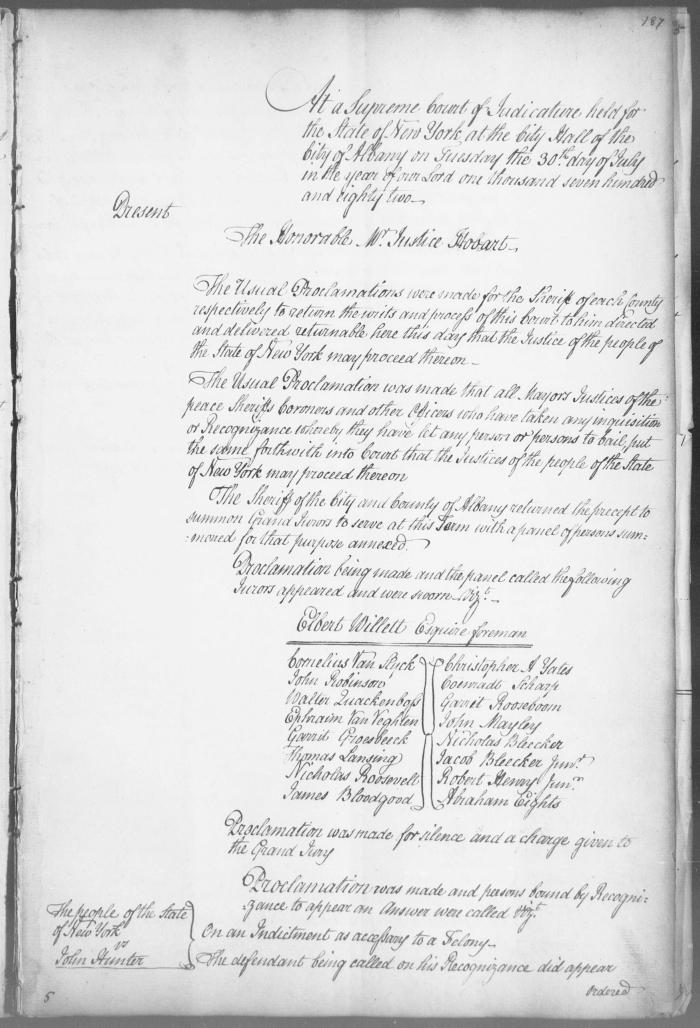 187
At a Supreme Court of Judicature held for
the State of New York at the City Hall of the
City of Albany on Tuesday the 30th. day of July
in the year of our Lord one thousand seven hundred
and eighty two
Present
The Honorable Mr. Justice Hobart
The Usual Proclamations were made for the Sheriff of each County
respectively to return the writs and process of this Court to him directed
and delivered returnable here this day that the Justice of the people of
the State of New York may proceed thereon
The Usual Proclamation was made that all Mayors Justices of the
peace Sheriffs Coroners and other Officers who have taken any inquisition
or Recognizance whereby they have let any person or persons to bail, put
the same forthwith into Court that the Justices of the people of the State
of New York may proceed thereon
The Sheriff of the City and County of Albany returned the precept to
summon Grand Jurors to serve at this Term with a panel of persons sum=
:moned for that purpose annexed.
Proclamation being made and the panel called the following
Jurors appeared and were sworn Vizt.
Elbert Willett Esquire foreman
Cornelius Van Slyck Christopher A Yates
John Robinson Coenradt Scharp
Walter Quackenboss Garret Rooseboom
Ephraim Van Veghten John Mayley
Garrit Groesbeeck Nicholas Bleecker
Thomas Lansing Jacob Bleecker Junr.
Nicholas Roosevell Robert Henry Junr.
James Bloodgood Abraham Eights
Proclamation was made for silence and a charge given to
the Grand Jury
Proclamation was made and persons bound by Recogni=
:zance to appear an Answer were called Vizt.
The people of the State
of New York
vs
John Hunter
On an Indictment as accessary to a Felony
The defendant being called on his Recognizance did appear
Ordered
5